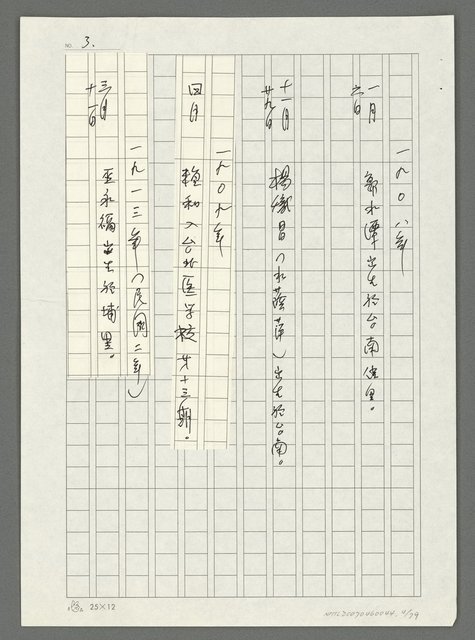 NO. 3.
一九〇八年
一月六日
郭水潭出生於台南佳里。
十一月廿九日
楊熾昌(水蔭萍)出生於台南。
一九〇九年
四月
賴和入台北医学校廿十三期。
一九一三年(民國二年)
三月十一日
巫永福出生於埔里。
25×12